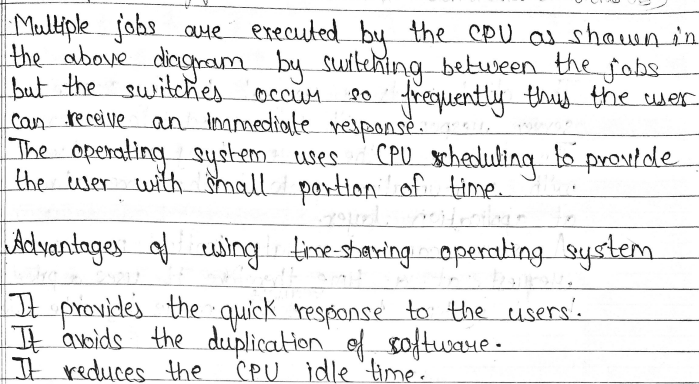 Multiple jobs are executed by the CPU as shown in
the above diagram by switching between the jobs
but the switches occur so frequently thus the user
can receive an immediate response.
The operating system uses CPU scheduling to provide
the user with small portion of time.
Advantages of using time-sharing operating system
It provides the quick response to the users.
It avoids the duplication of software.
It reduces the CPU idle time.